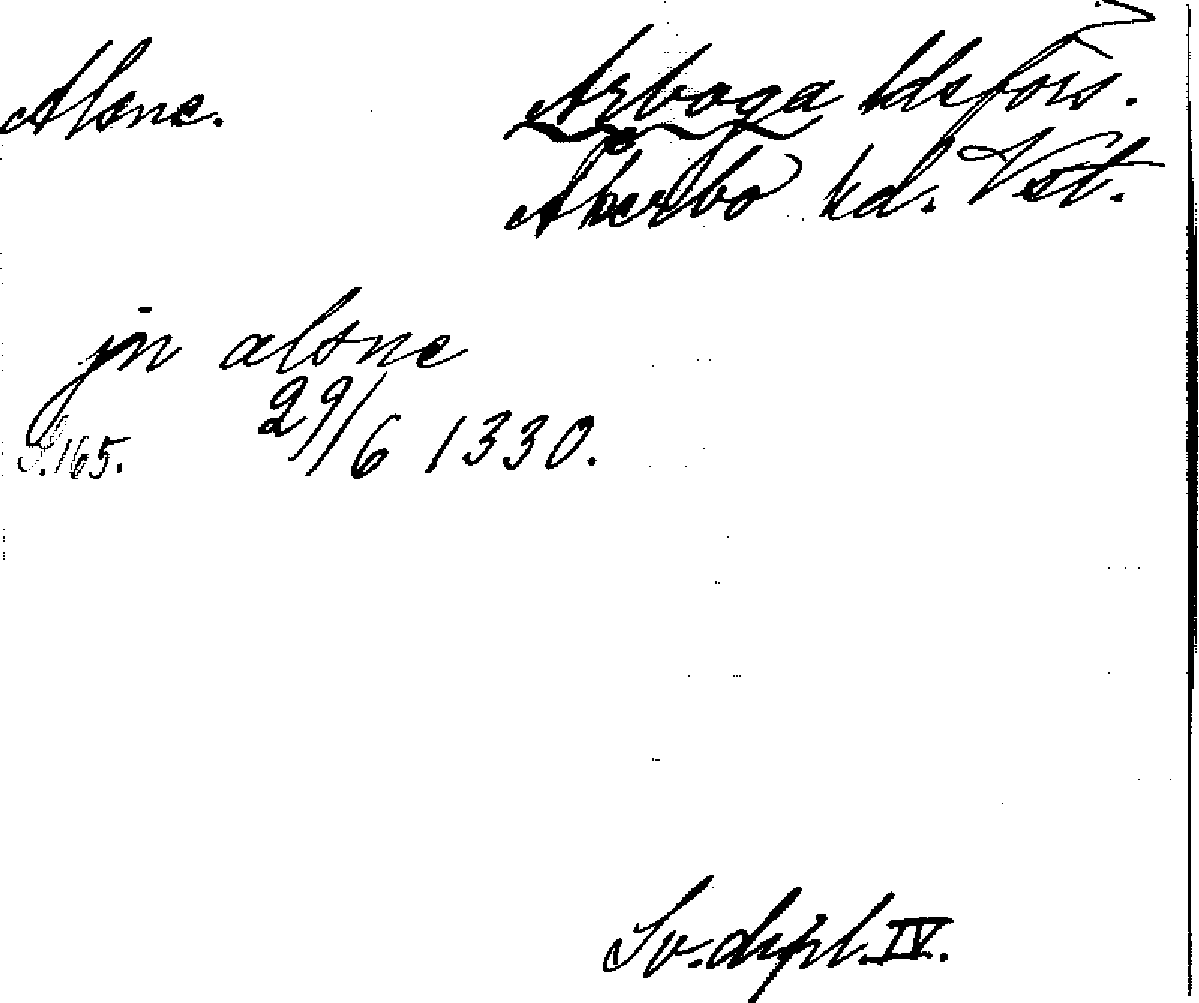 Alsne. Arboga ldsförs.
Åkerbo hd. Vst.
jn alsne
29/6 1330.
S. 165.
Sv. dipl. IV.